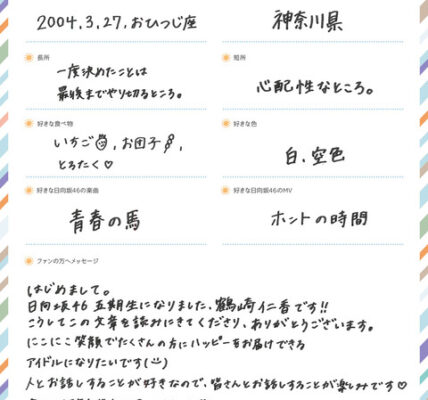 2004.3.27.おひつじ座
神奈川県
長所
一度決めたことは
最後までやり切るところ。
短所
心配性なところ。
好きな食べ物
いちご,お団子,
とろたく♡
好きな色
白,空色
好きな日向坂46の楽曲
青春の馬
好きな日向坂46のMV
ホントの時間
ファンの方へメッセージ
はじめまして。
日向坂46 五期生になりました、鶴崎仁香です!!
こうしてこの文章を読みにきてくださり、ありがとうございます。
にこにこ笑顔でたくさんの方にハッピーをお届けできる
アイドルになりたいです(¨̮)
人とお話しすることが好きなので、皆さんとお話しすることが楽しみです♡